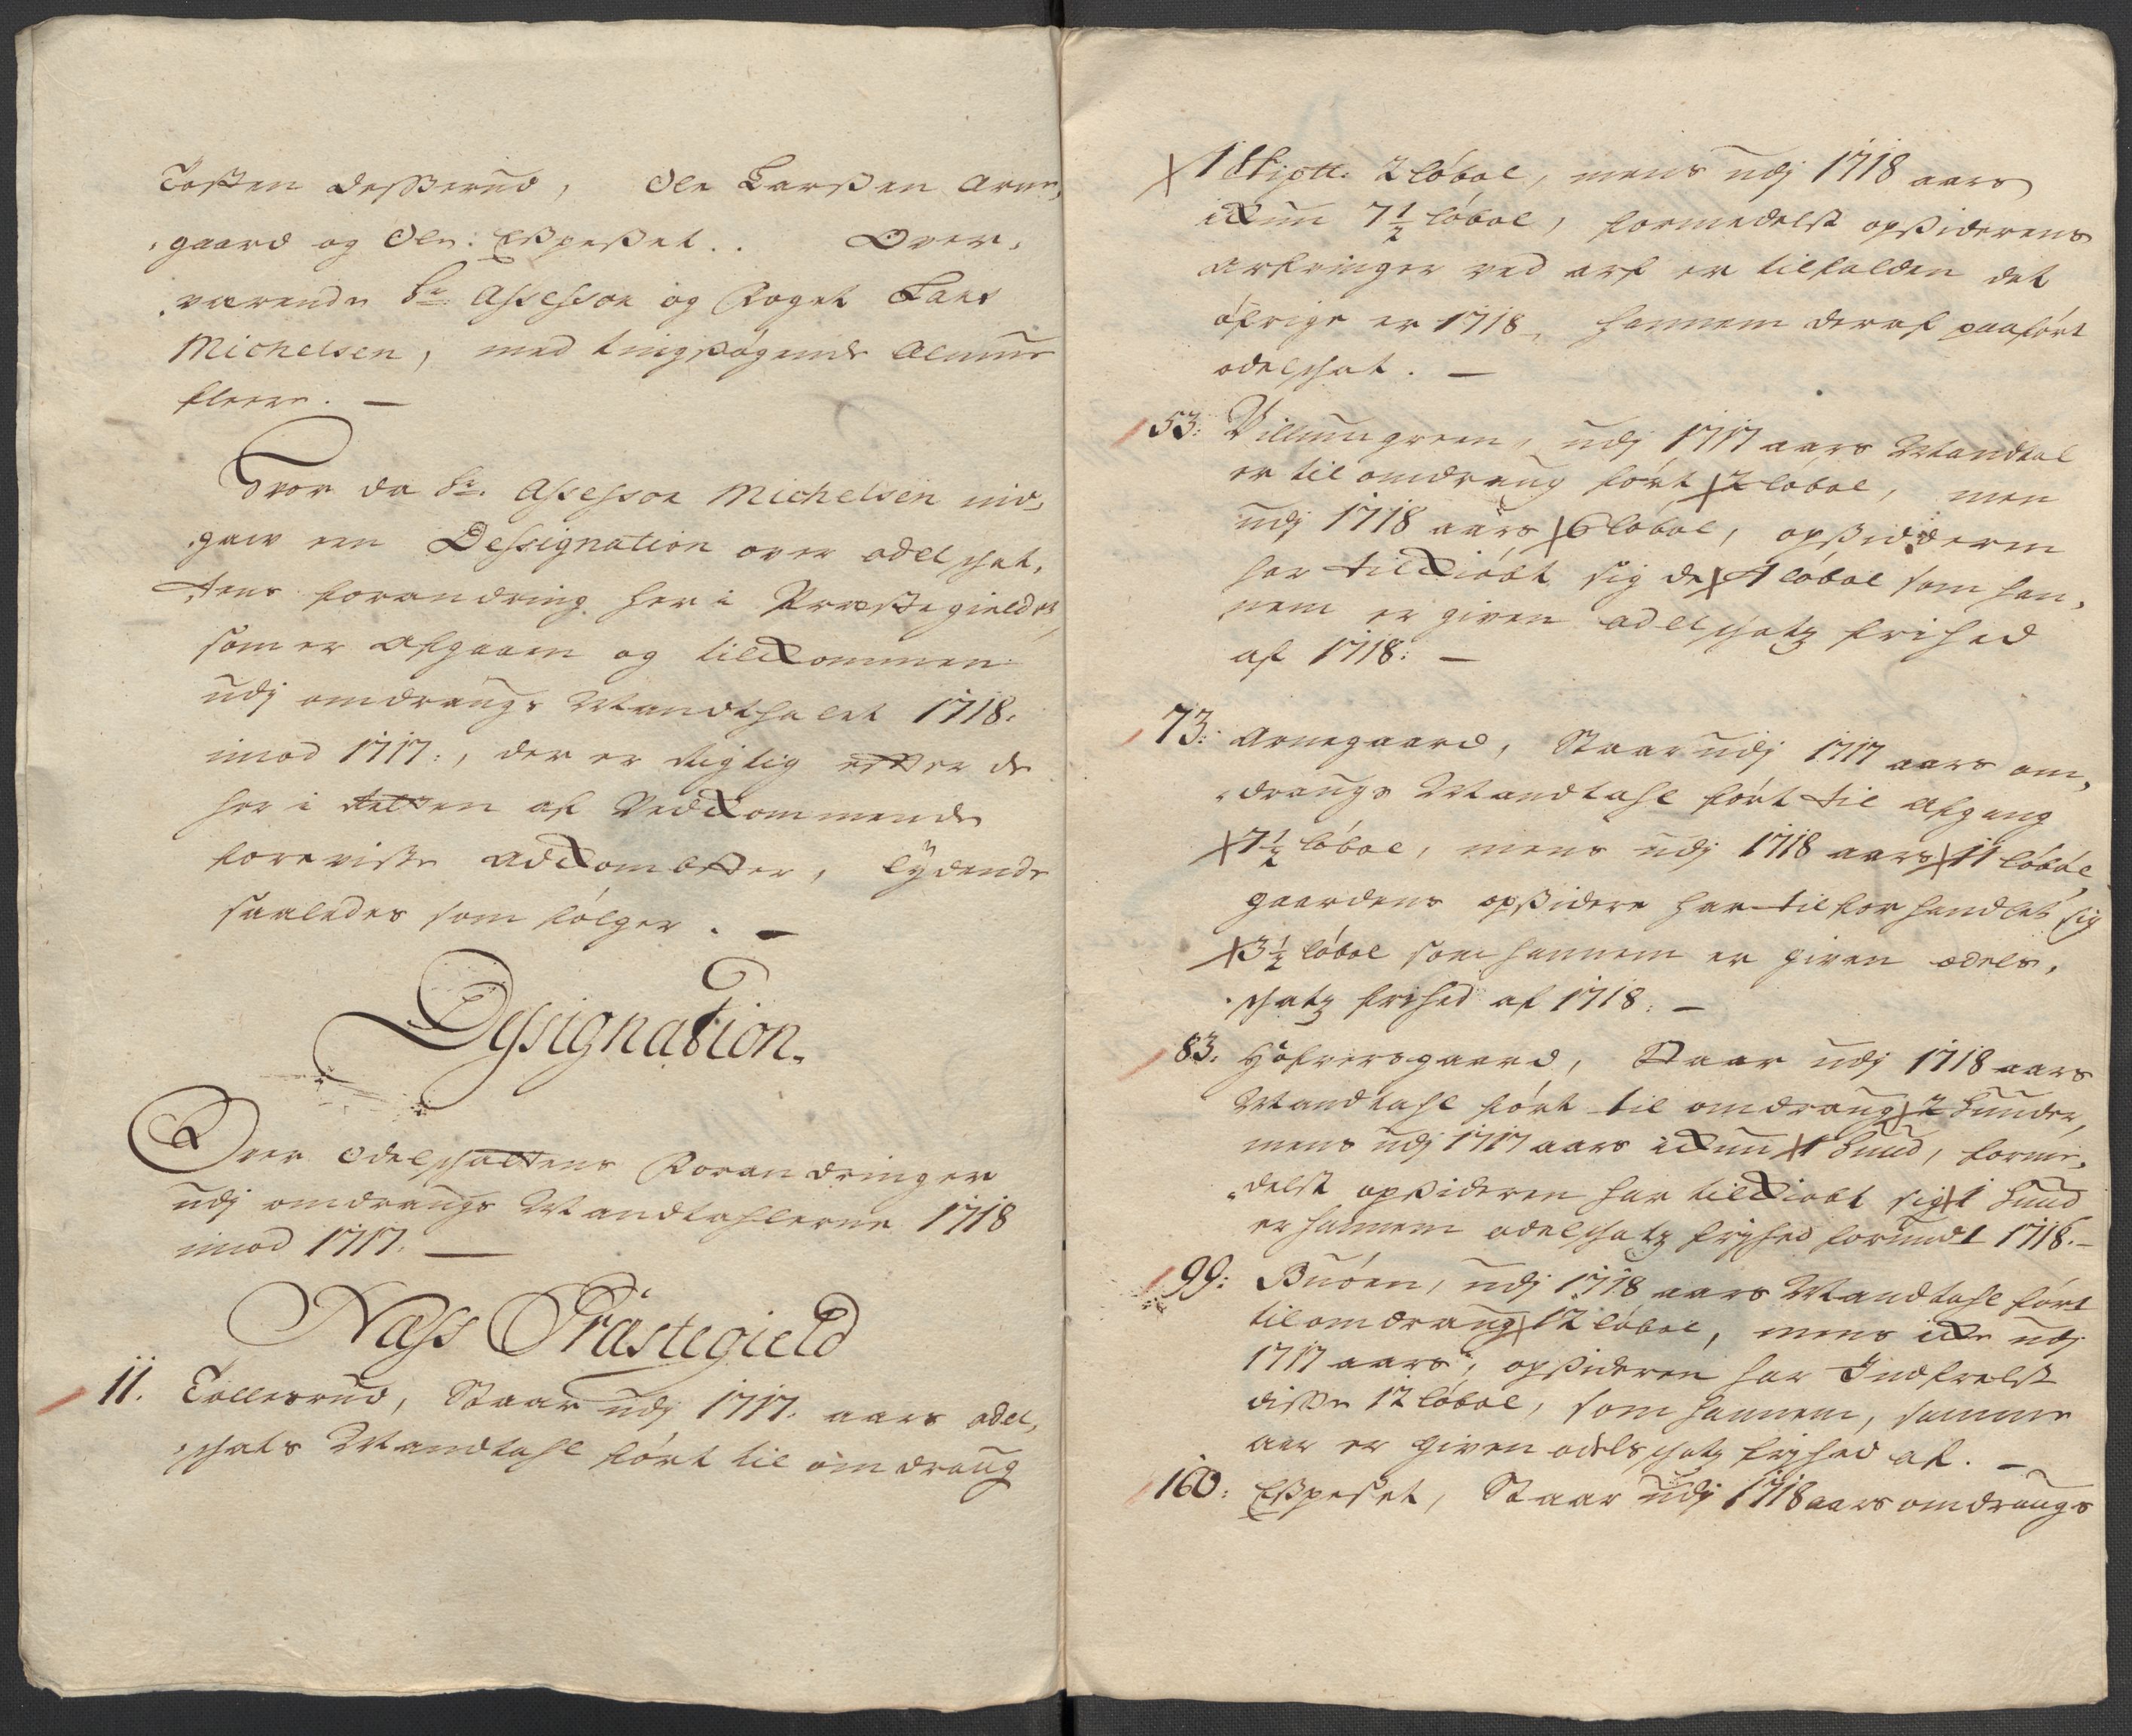 Tosten Desserud, Ole Larssen Arne,
gaard og Ole: Espeset.. Over,
værende Sr. Assessor og Foget Lars
Michelsen, med tingsøgende Almue
fleere. —
Hvor da Sr. Assessor Michelsen ind,
gaw een Dessignation over odel schat,
tens forandring her i Præstegieldet,
som er afgaaen og tilkommen
udj omdraugs Mandthalet 1718.
imod 1717:, der er rigtig efter de
her i Retten af Vedkommende
foreviste adkombster, lydende
saaledes som følger. —
Dessignation.
Over Odelschattens Forandringer
udj omdraugs Mandtahlerne 1718
imod 1717. —
Næss Præstegield
11. Tollesrud, Staar udj 1717. aars odel,
schats Mandtahl ført til omdraug
1 Skipt. 2 løbol, mens udj 1718 aars
ickun 7 1/2 løbol, formedelst opsiderens
arfvinger ved arf er tilfalden det
øfrige er 1718, hannem deraf paaført
odelschat. —
53: Villumgreen, udj 1717 aars Mandtal
er til omdraug ført 2 løbol, men
udj 1718 aars 6 løbol, opsidderen
har tilkiøbt sig de 4 løbol som han,
nem er given odelschatz frihed
af 1718: —
73: Arnegaard, Staar udj 1717 aars om,
draugs Mandtahl ført til afgang
7 1/2 løbol, mens udj 1718 aars 11 løbol,
gaardens opsidere har tilforhandlet sig
3 1/2 løbol som hannem er given odels,
schatz frihed af 1718. —
83. Høfversgaard, Staar udj 1718 aars
Mandtahl ført til omdraug 2 Hunder,
mens udj 1717 aars ickun 1 Hund, forme,
delst opsideren har tilkiøbt sig 1 Hund
er hannem odelschatz fryhed forundt 1718. —
99: Buøen, udj 1718 aars Mandtahl ført
til omdraug 12 løbol, mens icke udj
1717 aars, opsideren har Indfrelst
disse 12 løbol, som hannem, samme
aar er given odelsschatz fryhed af. —
160: Espeset, Staar udj 1718 aars omdraugs